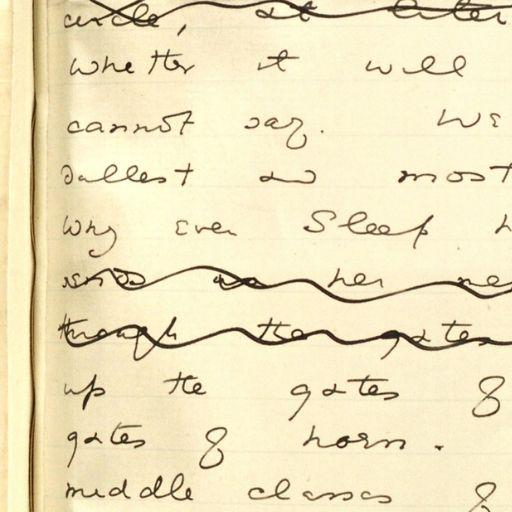 circle, at
Whether it will
cannot say. We
Dullest and most
Why even Sleep
her
through the gates
up the gates of
gates of horn.
middle classes of